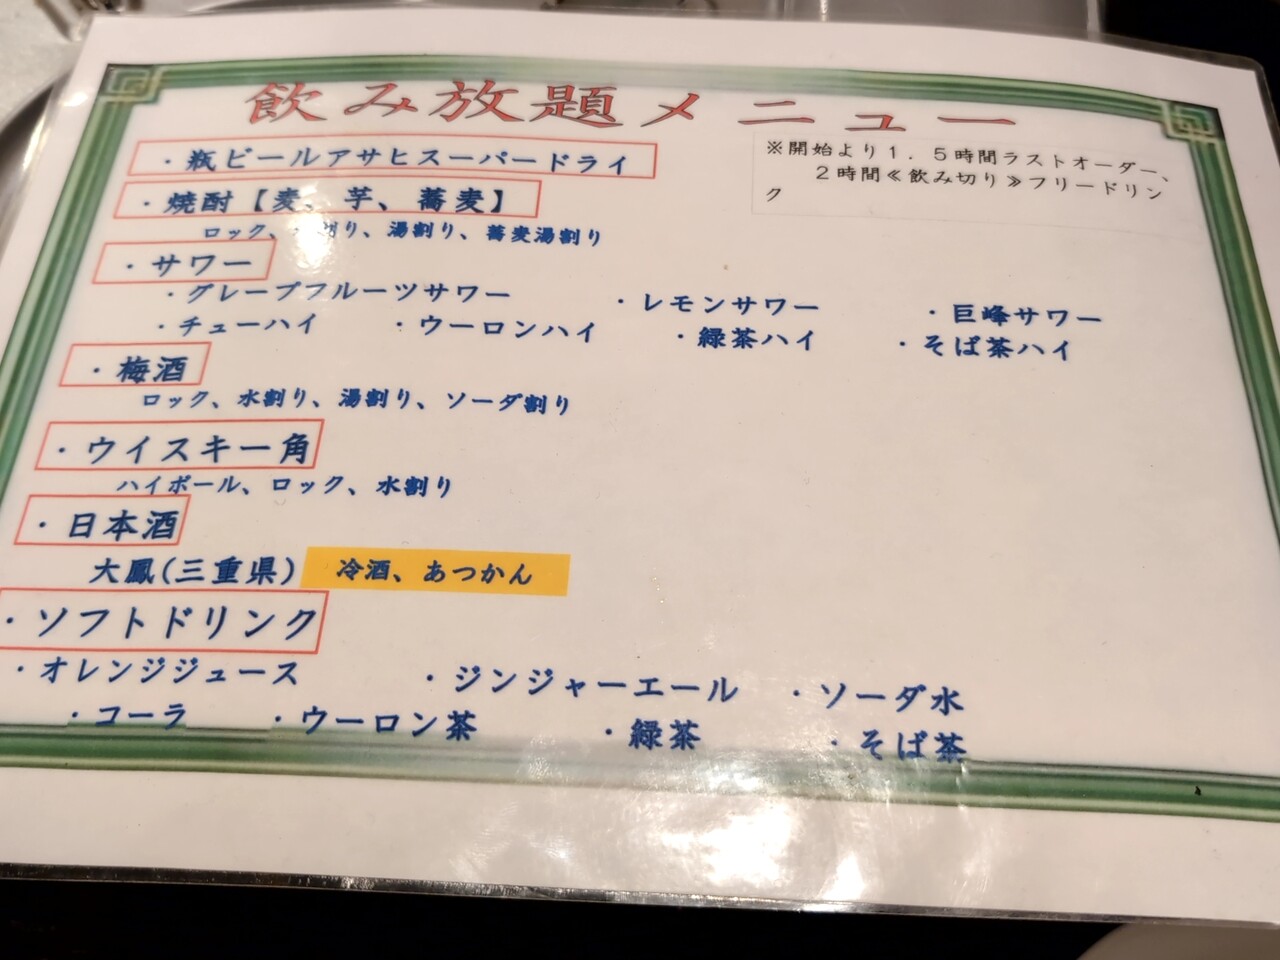 飲み放題メニュー
・瓶ビールアサヒスーパードライ
※開始より1.5時間ラストオーダー、
2時間≪飲み切り≫フリードリン
ク
・焼酎【麦、芋、蕎麦】
ロック、 割り、湯割り、蕎麦湯割り
・サワー
・グレープフルーツサワー ・レモンサワー ・巨峰サワー
・チューハイ ・ウーロンハイ ・緑茶ハイ ・そば茶ハイ
・梅酒
ロック、水割り、湯割り、ソーダ割り
・ウイスキー角
ハイボール、ロック、水割り
・日本酒
大鳳(三重県) 冷酒、あつかん
・ソフトドリンク
・オレンジジュース ・ジンジャーエール ・ソーダ水
・コーラ ・ウーロン茶 ・緑茶 ・そば茶